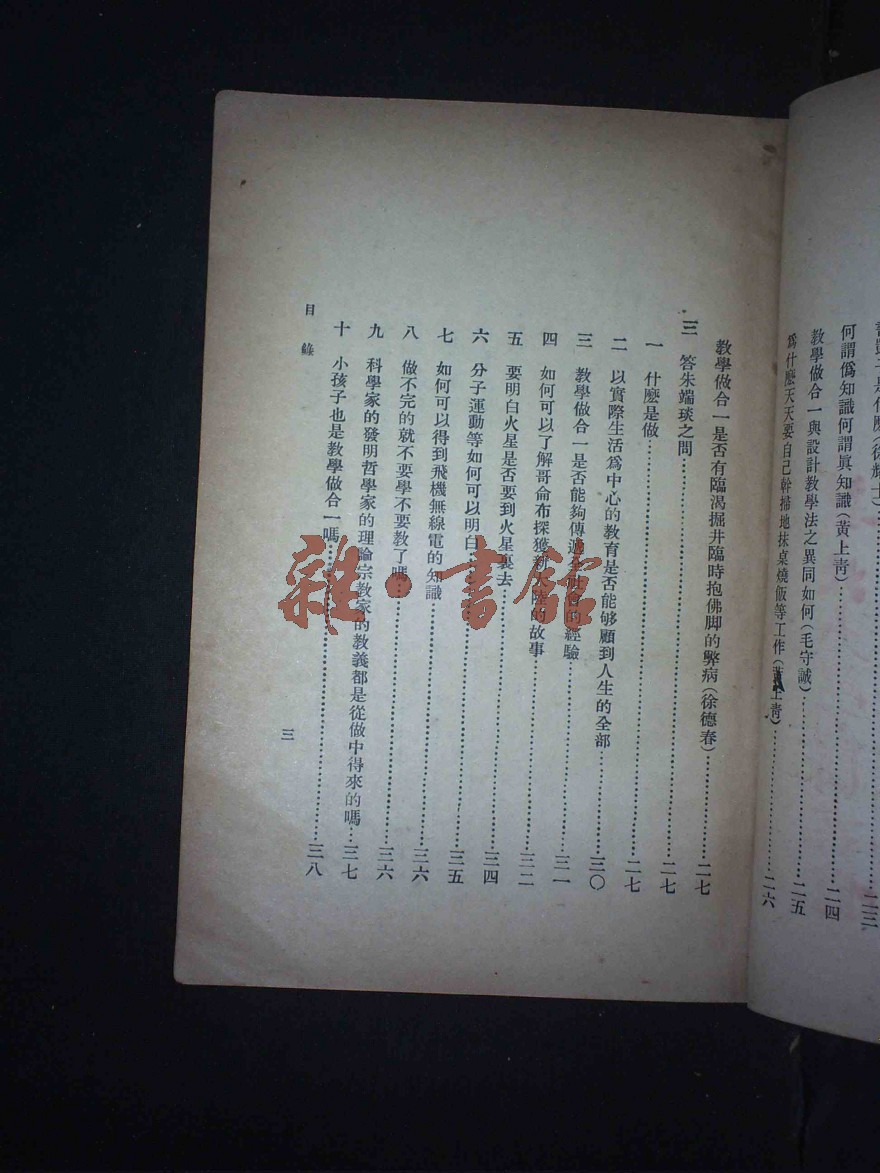 何謂僞知識何謂眞知識(黃上靑)……二四
教學做合一與設計教學法之異同如何(毛守誠)……二五
爲什麼天天要自己幹掃地抹桌燒飯等工作(黃上靑)……二六
教學做合一是否有臨渴掘井臨時抱佛脚的弊病(徐德春)……二七
三 答朱端琰之問……二七
一 什麼是做……二七
二 以實際生活爲中心的教育是否能够顧到人生的全部……三〇
三 教學做合一是否能夠傳遞全社會的經驗……三一
四 如何可以了解哥侖布探獲新大陸的故事……三二
五 要明白火星是否要到火星裏去……三四
六 分子運動等如何可以明白……三五
七 如何可以得到飛機無線電的知識……三六
八 做不完的就不要學不要教了嗎……三六
九 科學家的發明哲學家的理論宗教家的教義都是從做中得來的嗎…三七
十 小孩子也是教學做合一嗎……三八
目錄
三
雜·書館